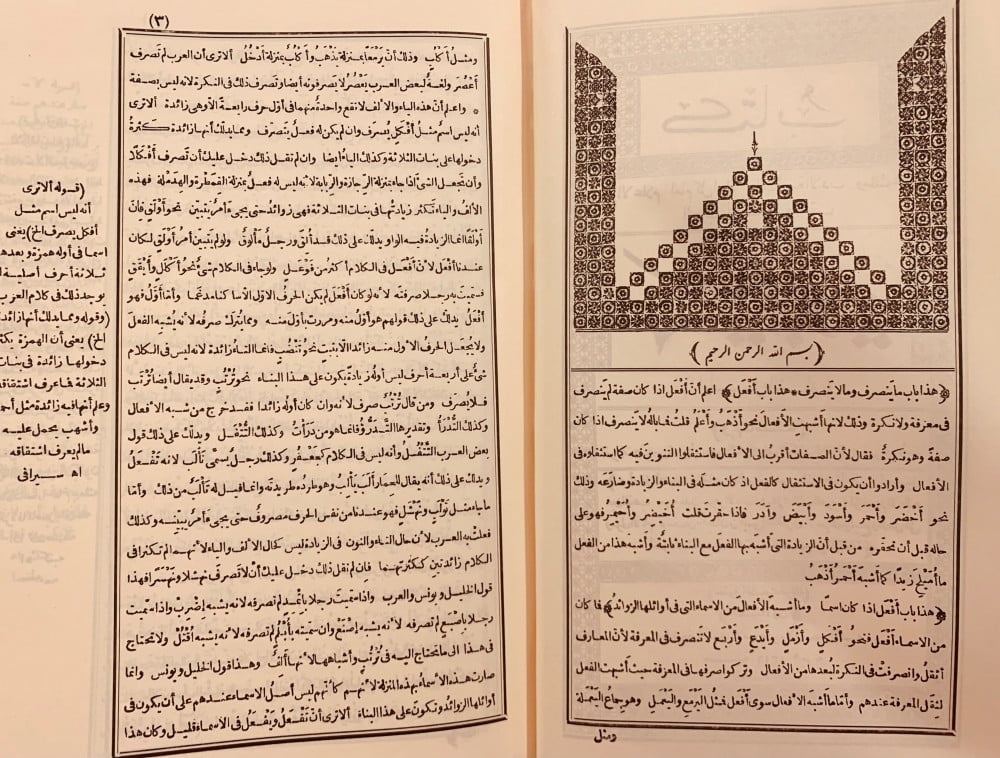 ﴿بسم الله الرحمن الرحيم﴾
﴿هذا باب ما ينصرف وما لا ينصرف * هذا باب أَفْعَل﴾ اعلم أنّ أَفْعَل اذا كان صفة لم ينصرف
فى معرفة ولا نكرة وذلك لانها أشبهت الأفعال نحو أَذْهَبُ وأَعْلَمُ قلتُ فما باله لا ينصرف اذا كان
صفة وهو نكرة فقال لأنّ الصفات أقرب الى الأفعال فاستثقلوا التنوين فيه كما استثقلوه فى
الأفعال وأرادوا أن يكون فى الاستثقال كالفعل اذ كان مثله فى البناء والزيادة وضارَعه وذلك
نحو أَخْضَر وأَحْمَر وأَسْوَد وأَبْيَض وآدَر فاذا حقرت قلت أُخَيْضِرُ وأُحَيْمِرُ فهو على
حاله قبل أن تحقّره من قبل أنّ الزيادة التى أشبه بها الفعل مع البناء ثابتةٌ وأشبه هذا من الفعل
ما أُمَيْلِحَ زيدًا كما أشبه أَحْمَرُ أَذْهَبُ
﴿هذا باب أَفْعَل اذا كان اسمًا وما أشبه الأفعالَ من الأسماء التى فى أوائلها الزوائد﴾ فما كان
من الأسماء أَفْعَل فنحو أَفْكَلٍ وأَزْمَلٍ وأَيْدَعٍ وأَرْبَعٍ لا تنصرف فى المعرفة لأنّ المعارف
أثقلُ وانصرفتْ فى النكرة لبعدها من الأفعال وتركوا صرفها فى المعرفة حيث أشبهت الفعل
لثِقَل المعرفة عندهم وأمّا ما أشبه الأفعال سوى أَفْعَل فمثلُ اليَرْمَع واليَعْمَل وهو جِماعُ اليَعْمَلة
ومثل
(٣)
ومثلُ أَكْلُبَ وذلك أنّ يَرْمَعًا بمنزلة يَذْهَبُ وأَكْلُبٌ بمنزلة أَدْخُلُ ألا ترى أنّ العرب لم تصرف
أَعْصُرَ ولغةٌ لبعض العرب يَعْصُرُ لا يصرفونه أيضا وتصرف ذلك فى النكرة لأنه ليس بصفة
* واعلم أنّ هذه الياء والألف لا تقع واحدة منهما فى أوّل حرفٍ رابعةً إلّا وهى زائدة ألا ترى
أنه ليس اسم مثل أَفْكَلٍ يُصرَف وان لم يكن له فعل يتصرّف ومما يدلّك أنها زائدة كثرةُ
دخولها على بنات الثلاثة وكذلك الياءُ أيضا وان لم تقل ذلك دخل عليك أن تصرف أَفْكَلًا
وأن تجعل الشئ اذا جاء بمنزلة الرِّجازة والرِّبابة لانه ليس له فعلٌ بمنزلة القِمَطْرة والهِدَمْلة فهذه
الألف والياء تكثر زيادتهما فى بنات الثلاثة فهى زوائدُ حتى يجىء أمرٌ يتبيّن نحو أَوْلَقٍ فانّ
أَوْلَقًا انما الزيادة فيه الواو يدلّك على ذلك قد أُلِقَ ورجل مَأْلُوقٌ ولو لم يتبيّن أمرُ أَوْلَقٍ لكان
عندنا أَفْعَلَ لأنّ أَفْعَل فى الكلام أكثر من فَوْعَلٍ ولو جاء فى الكلام شئٌ نحوُ أَكْلَلٍ وأَيْقَقٍ
فسمّيتَ به رجلا صرفتَه لأنه لو كان أَفْعَلَ لم يكن الحرفُ الاوّل الاّ ساكنا مدغَما وأمّا أَوَّلُ فهو
أَفْعَلُ يدلّك على ذلك قولهم هو أَوَّلُ منه ومررت بأَوَّلَ منه ومما يُترَك صرفُه لأنه يُشبه الفعلَ
ولا يُجعَل الحرفُ الأول منه زائدا الاّ بثبت نحوُ تَنْضُبٍ فانما التاء زائدة لانه ليس فى الكلام
شئٌ على أربعة أحرف ليس أوّلُه زيادةً يكون على هذا البناء نحوُ تُرْتُبٍ وقد يقال أيضا تُرْتَبٌ
فلا يُصرف ومن قال تُرْتَبٌ صرف لأنه وان كان أوّله زائدا فقد خرج من شبه الأفعال
وكذلك التُّدْرَأُ وتقديرها التُّدْرَعُ فانما هو من دَرَأْتُ وكذلك التُّتْفَل ويدلّك على ذلك قول
بعض العرب التَّتْفُل وأنه ليس فى الكلام كجَعْفُرٍ وكذلك رجل يُسمَّى تَأْلَبَ لانه تَفْعَلُ
ويدلّك على ذلك أنه يقال للحمار أَلَبَ يَأْلِبُ وهو طرده طريدته وانما قيل له تَأْلَبٌ من ذلك وأمّا
ما جاء مثل تَوْلَبٍ ونَهْشَلٍ فهو عندنا من نفس الحرف مصروفٌ حتى يجىء أمرٌ يبيّنه وكذلك
فعلتْ به العربُ لأنّ حال التاء والنون فى الزيادة ليس كحال الألف والياء لأنهما لم تكثرا فى
الكلام زائدتين ككثرتهما فإن لم تقل ذلك دخل عليك أن لا تصرف نَهْشَلا ونَهْسَرًا فهذا
قول الخليل ويونس والعرب واذا سمّيتَ رجلا بإثْمِدٍ لم تصرفه لانه يشبه إضْرِبْ واذا سمّيت
رجلا بإصْبَعٍ لم تصرفه لأنه يشبه إصْنَعْ وان سمّيته بأُبْلُمٍ لم تصرفه لأنه يشبه اُقْتُلْ ولا تحتاج
فى هذا الى ما تحتاج اليه فى تُرْتُبٍ وأشباهها لأنها أَلِفٌ وهذا قول الخليل ويونس وانما
صارت هذه الأسماءُ بهذه المنزلة لأنهم كأنهم ليس أصلُ الاسماء عندهم على أن يكون فى
أوائلها الزوائد وتكون على هذا البناء ألا ترى أنّ تَفْعَلُ ويَفْعَلُ فى الأسماء قليل وكان هذا
(قوله ألا ترى
أنه ليس اسم مثل
أفكل يصرف الخ) يعنى
اسما فى أوله همزة وبعدها
ثلاثة أحرف أصلية
يوجد ذلك فى كلام العرب
(وقوله ومما يدلك أنها زائدة
الخ) يعنى أن الهمزة يكثر
دخولها زائدة فى بنات
الثلاثة فما عرف اشتقاقه
وعلم أنها فيه زائدة مثل أحمر
وأشهب يحمل عليه
ما لم يعرف اشتقاقه
اه سيرافى